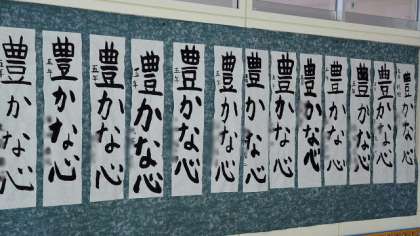 豊かな心
五年
豊かな心
五年
豊かな心
五年
豊かな心
五年
豊かな心
五年
豊かな心
五年
豊かな心
五年
豊かな心
豊かな心
豊かな心
豊かな心
豊かな心
豊かな心